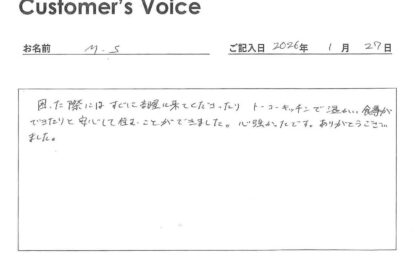 Customer's Voice
お名前 M.S ご記入日 2026年 1月 27日
困った際にはすぐにお部屋に来てくださったり トーコーキッチンで温かい食事が
できたりと安心して住むことができました。心強かったです。ありがとうござい
ました。